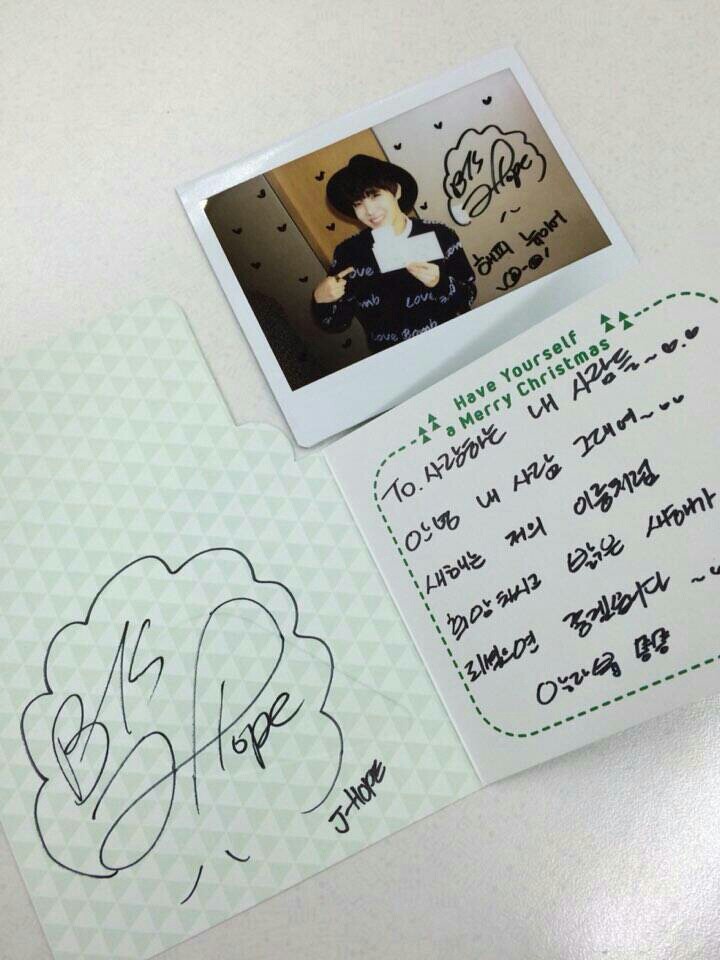 BTS
J Hope
해피 뉴이어
Love
Love
Love Bomb
Have Yourself
a Merry Christmas
To. 사랑하는 내 사람들~
안녕 내 사람 그대여~
새해는 저의 이름처럼
희망차시고 밝은 새해가
되셨으면 좋겠습니다 ~
BTS
J Hope
J-HOPE